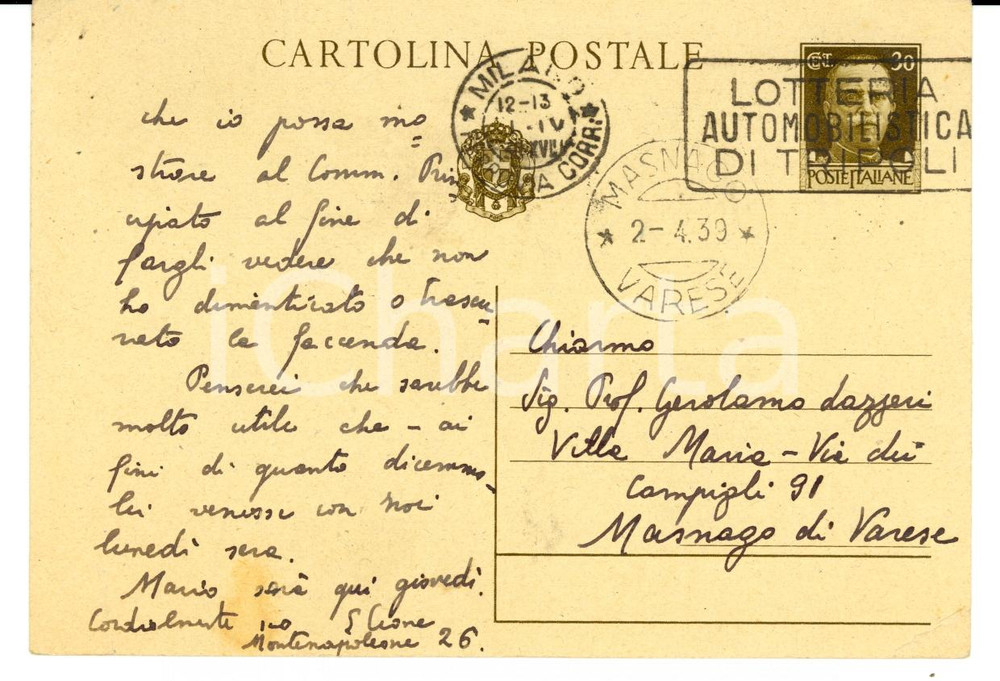 CARTOLINA POSTALE
MILANO
12-13
IV
XVII
CORR.
CENT. 30
POSTE ITALIANE
LOTTERIA
AUTOMOBILISTICA
DI TRIPOLI
MASNAGO
2-4.39
VARESE
che io possa mo=
strare al Comm. Prin
cipato al fine di
fargli vedere che non
ho dimenticato o trascu-
rato la faccenda.
Penserei che sarebbe
molto utile che - ai
fini di quanto dicemmo -
lei venisse con noi
lunedì sera.
Mario sarà qui giovedì.
Cordialmente suo E Cione
Montenapoleone 26.
Chiarmo
Sig. Prof. Gerolamo Lazzeri
Villa Maria - Via dei
Campigli 91
Masnago di Varese
iCharta